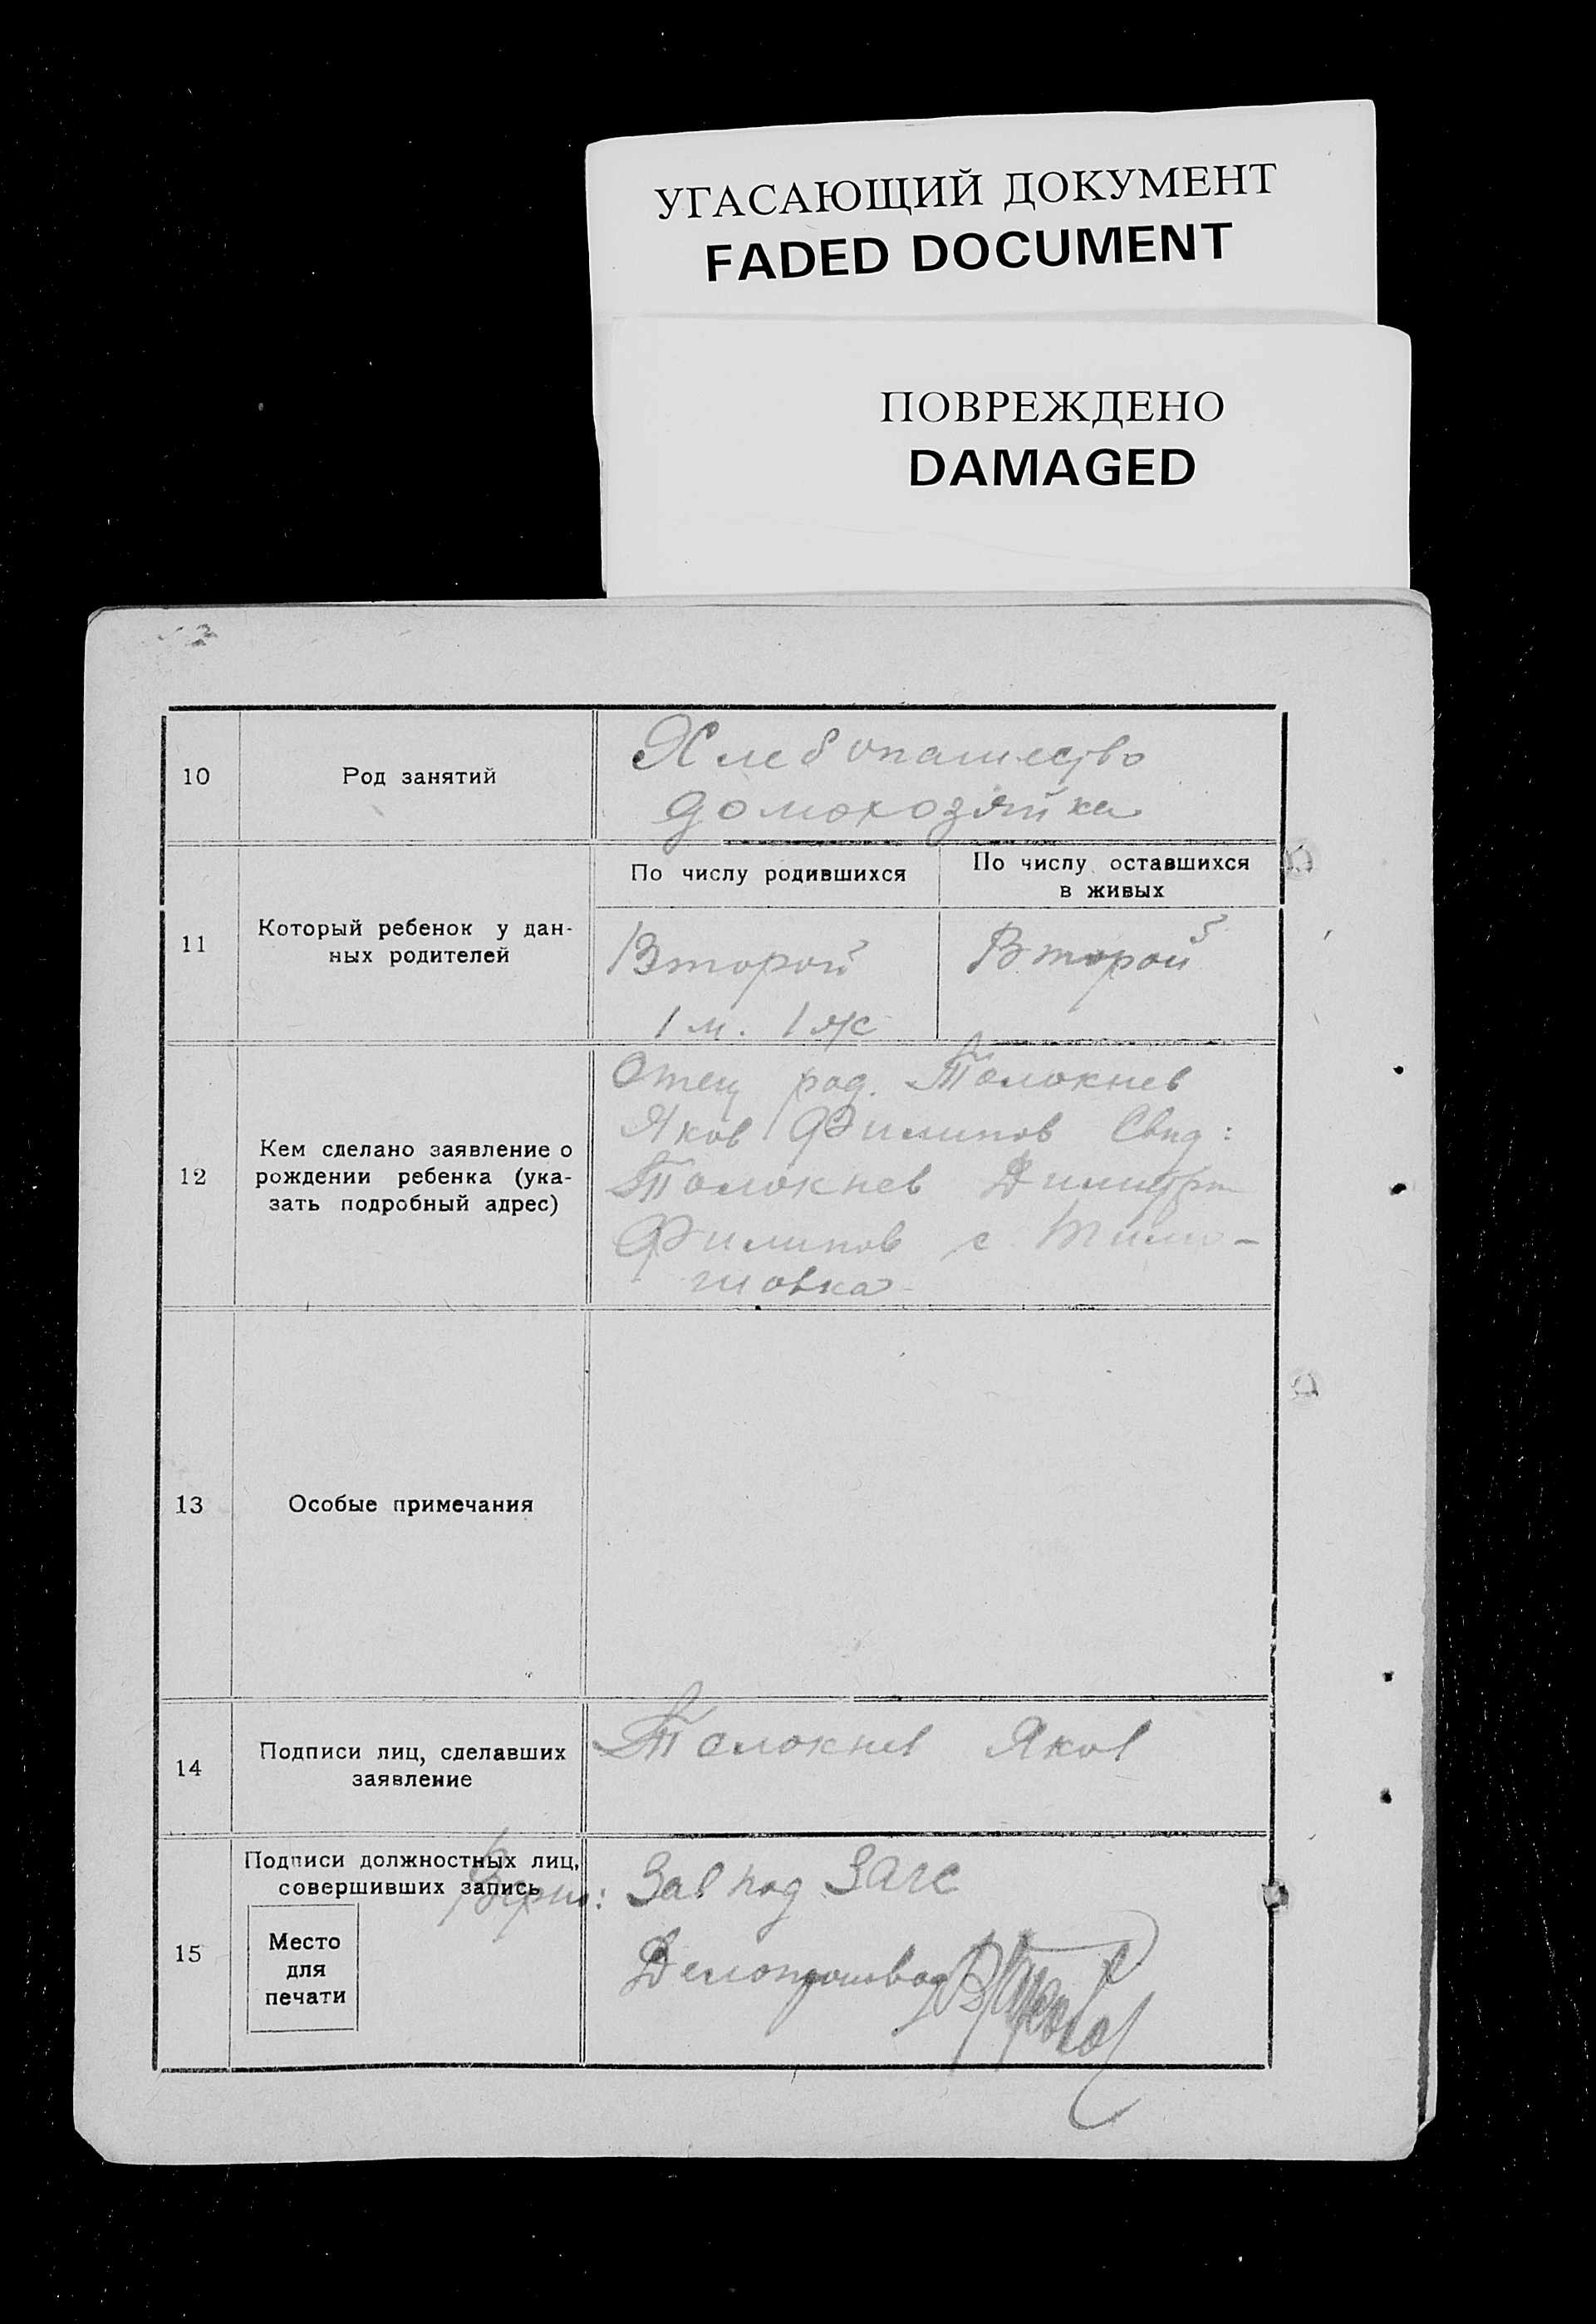 УГАСАЮЩИЙ ДОКУМЕНТ
FADED DOCUMENT
ПОВРЕЖДЕНО
DAMAGED
10
Род занятий
Хлебопашество
домохозяйка
11
Который ребенок у дан-
ных родителей
По числу родившихся
По числу оставшихся
в живых
Второй
1 м. 1 ж
Второй
12
Кем сделано заявление о
рождении ребенка (ука-
зать подробный адрес)
Отец род. Толокнев
Яков Филипов Свид:
Толокнев Димитри
Филипов с.
шовка
13
Особые примечания
14
Подписи лиц, сделавших
заявление
Толокнев Яков
15
Подписи должностных лиц,
совершивших запись
Место
для
печати
Верно: Зав под ЗАГС
Делопроизвод